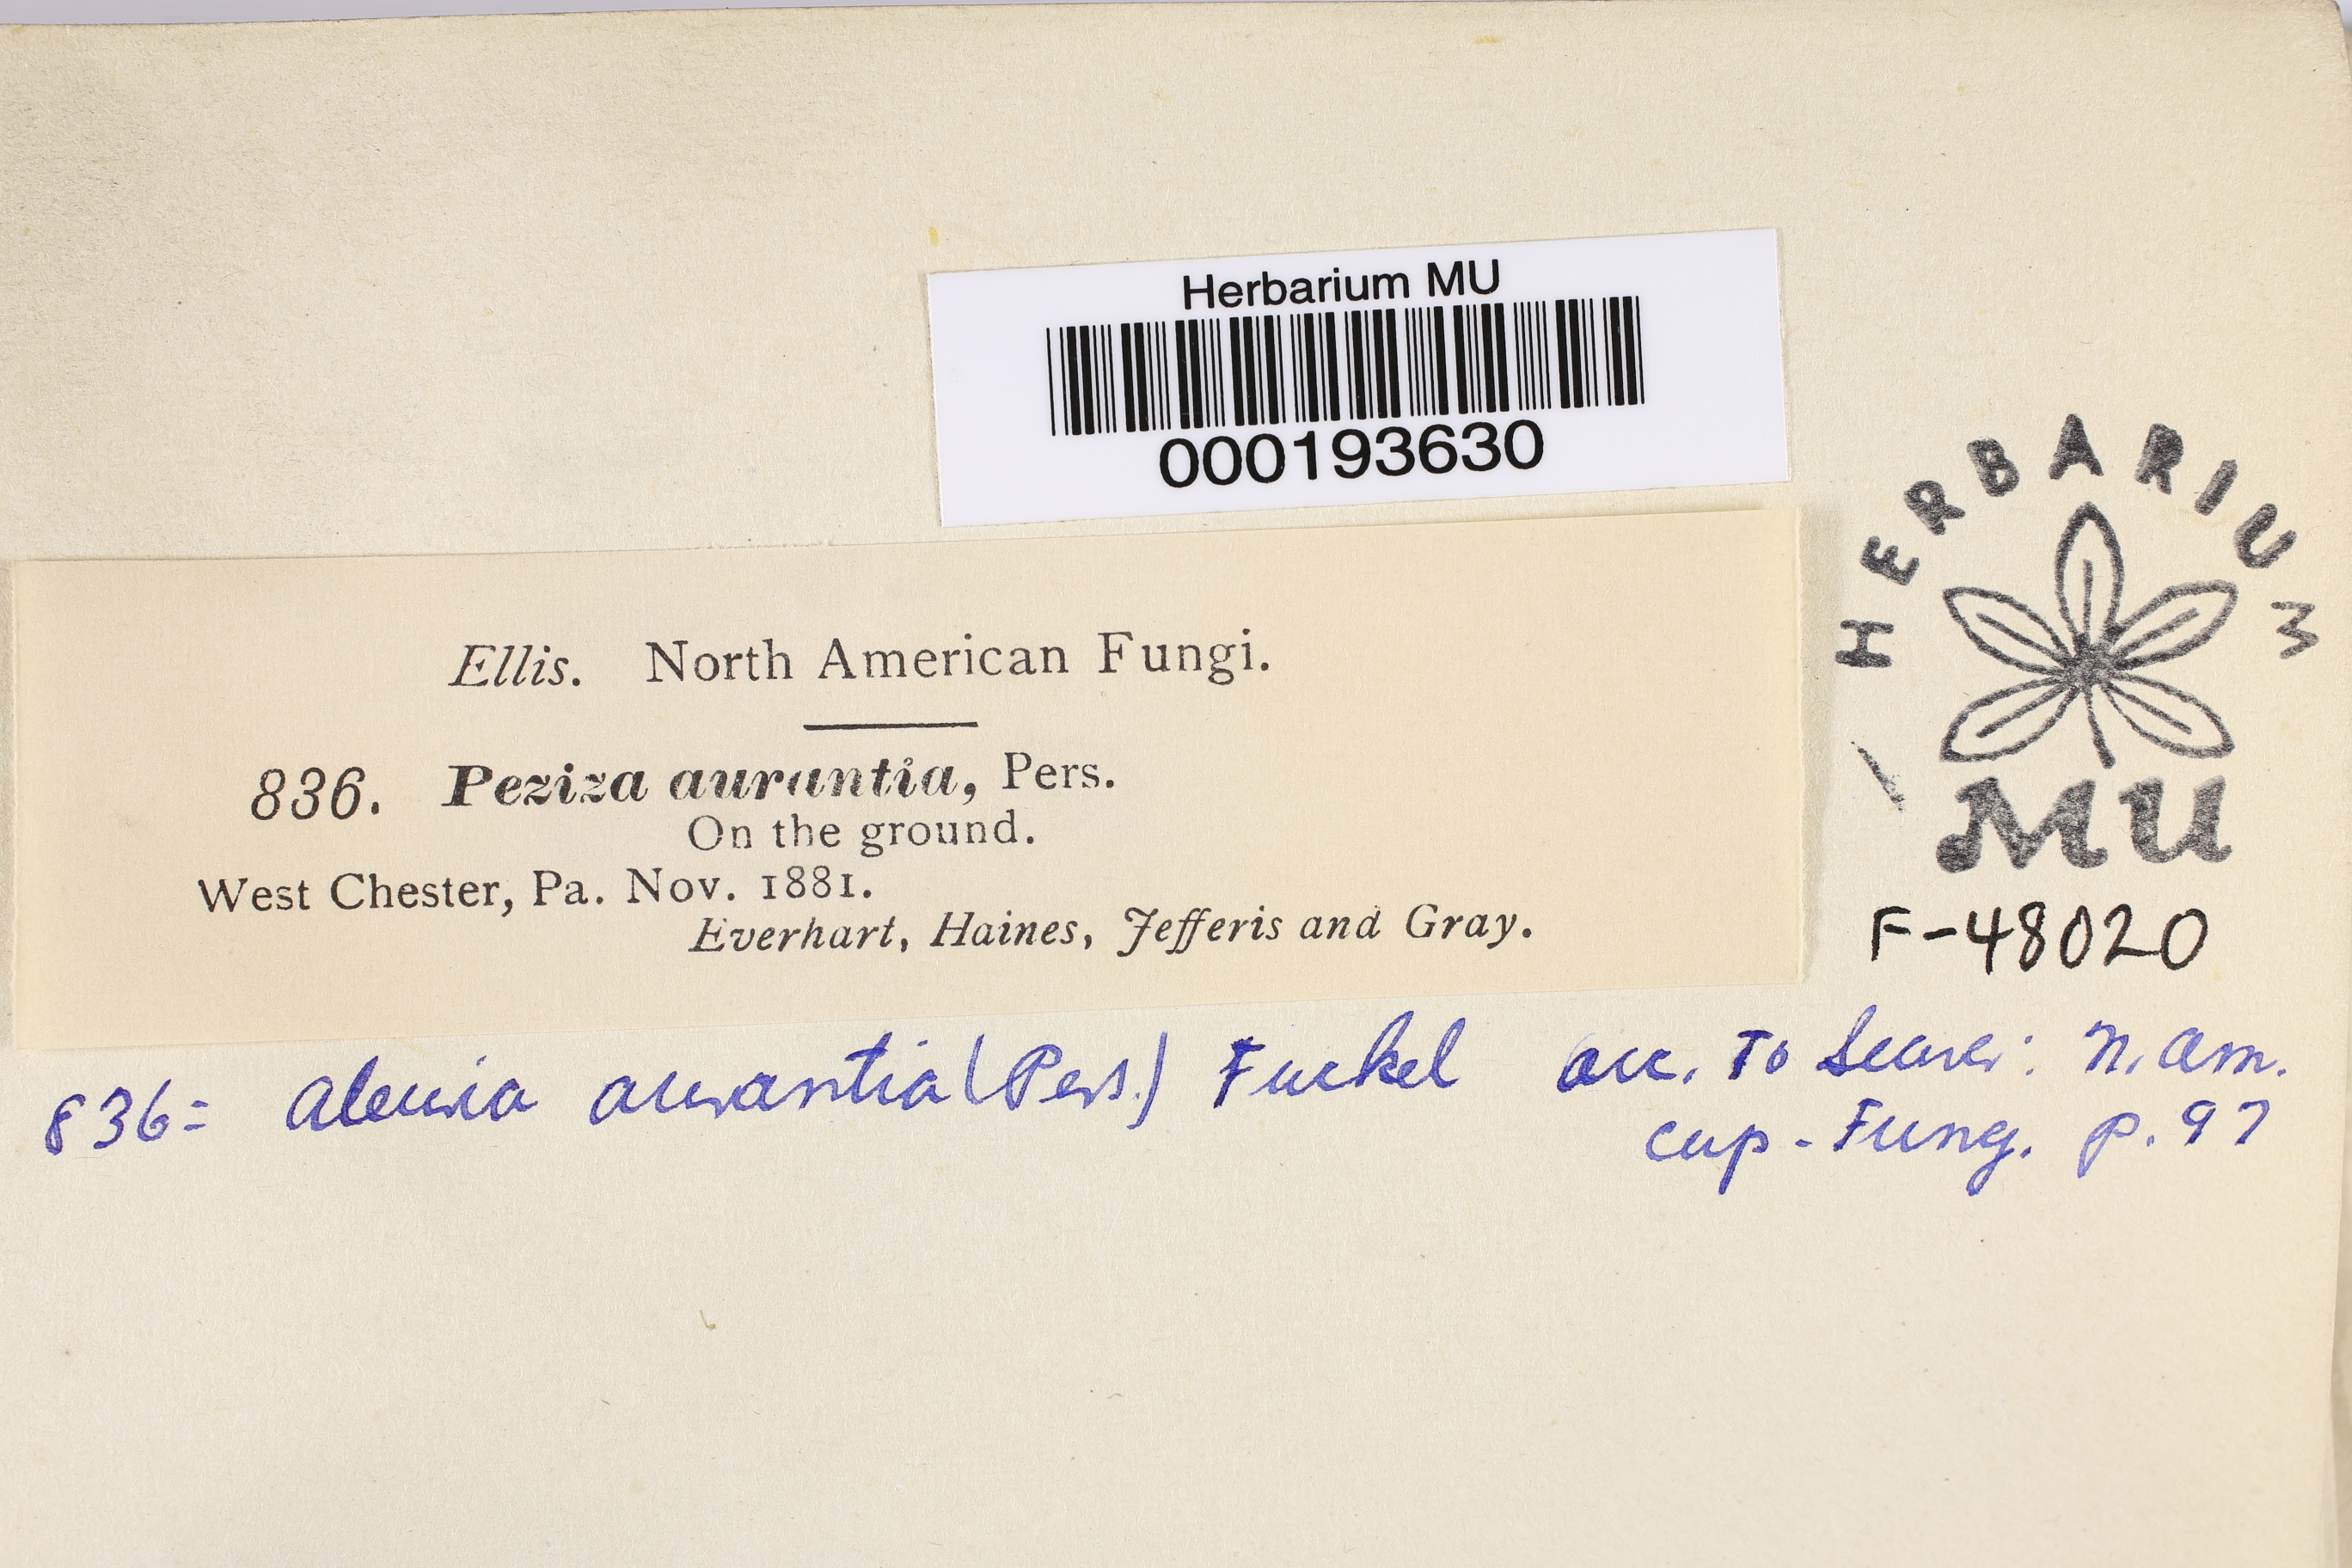 Herbarium MU
000193630
HERBARIUM
MU
F-48020
Ellis. North American Fungi.
836. Peziza aurantia, Pers.
On the ground.
West Chester, Pa. Nov. 1881.
Everhart, Haines, Jefferis and Gray.
836= Aleuria aurantia (Pers.) Fuckel acc. To Seaver: N. Am.
Cup-Fung. p. 97